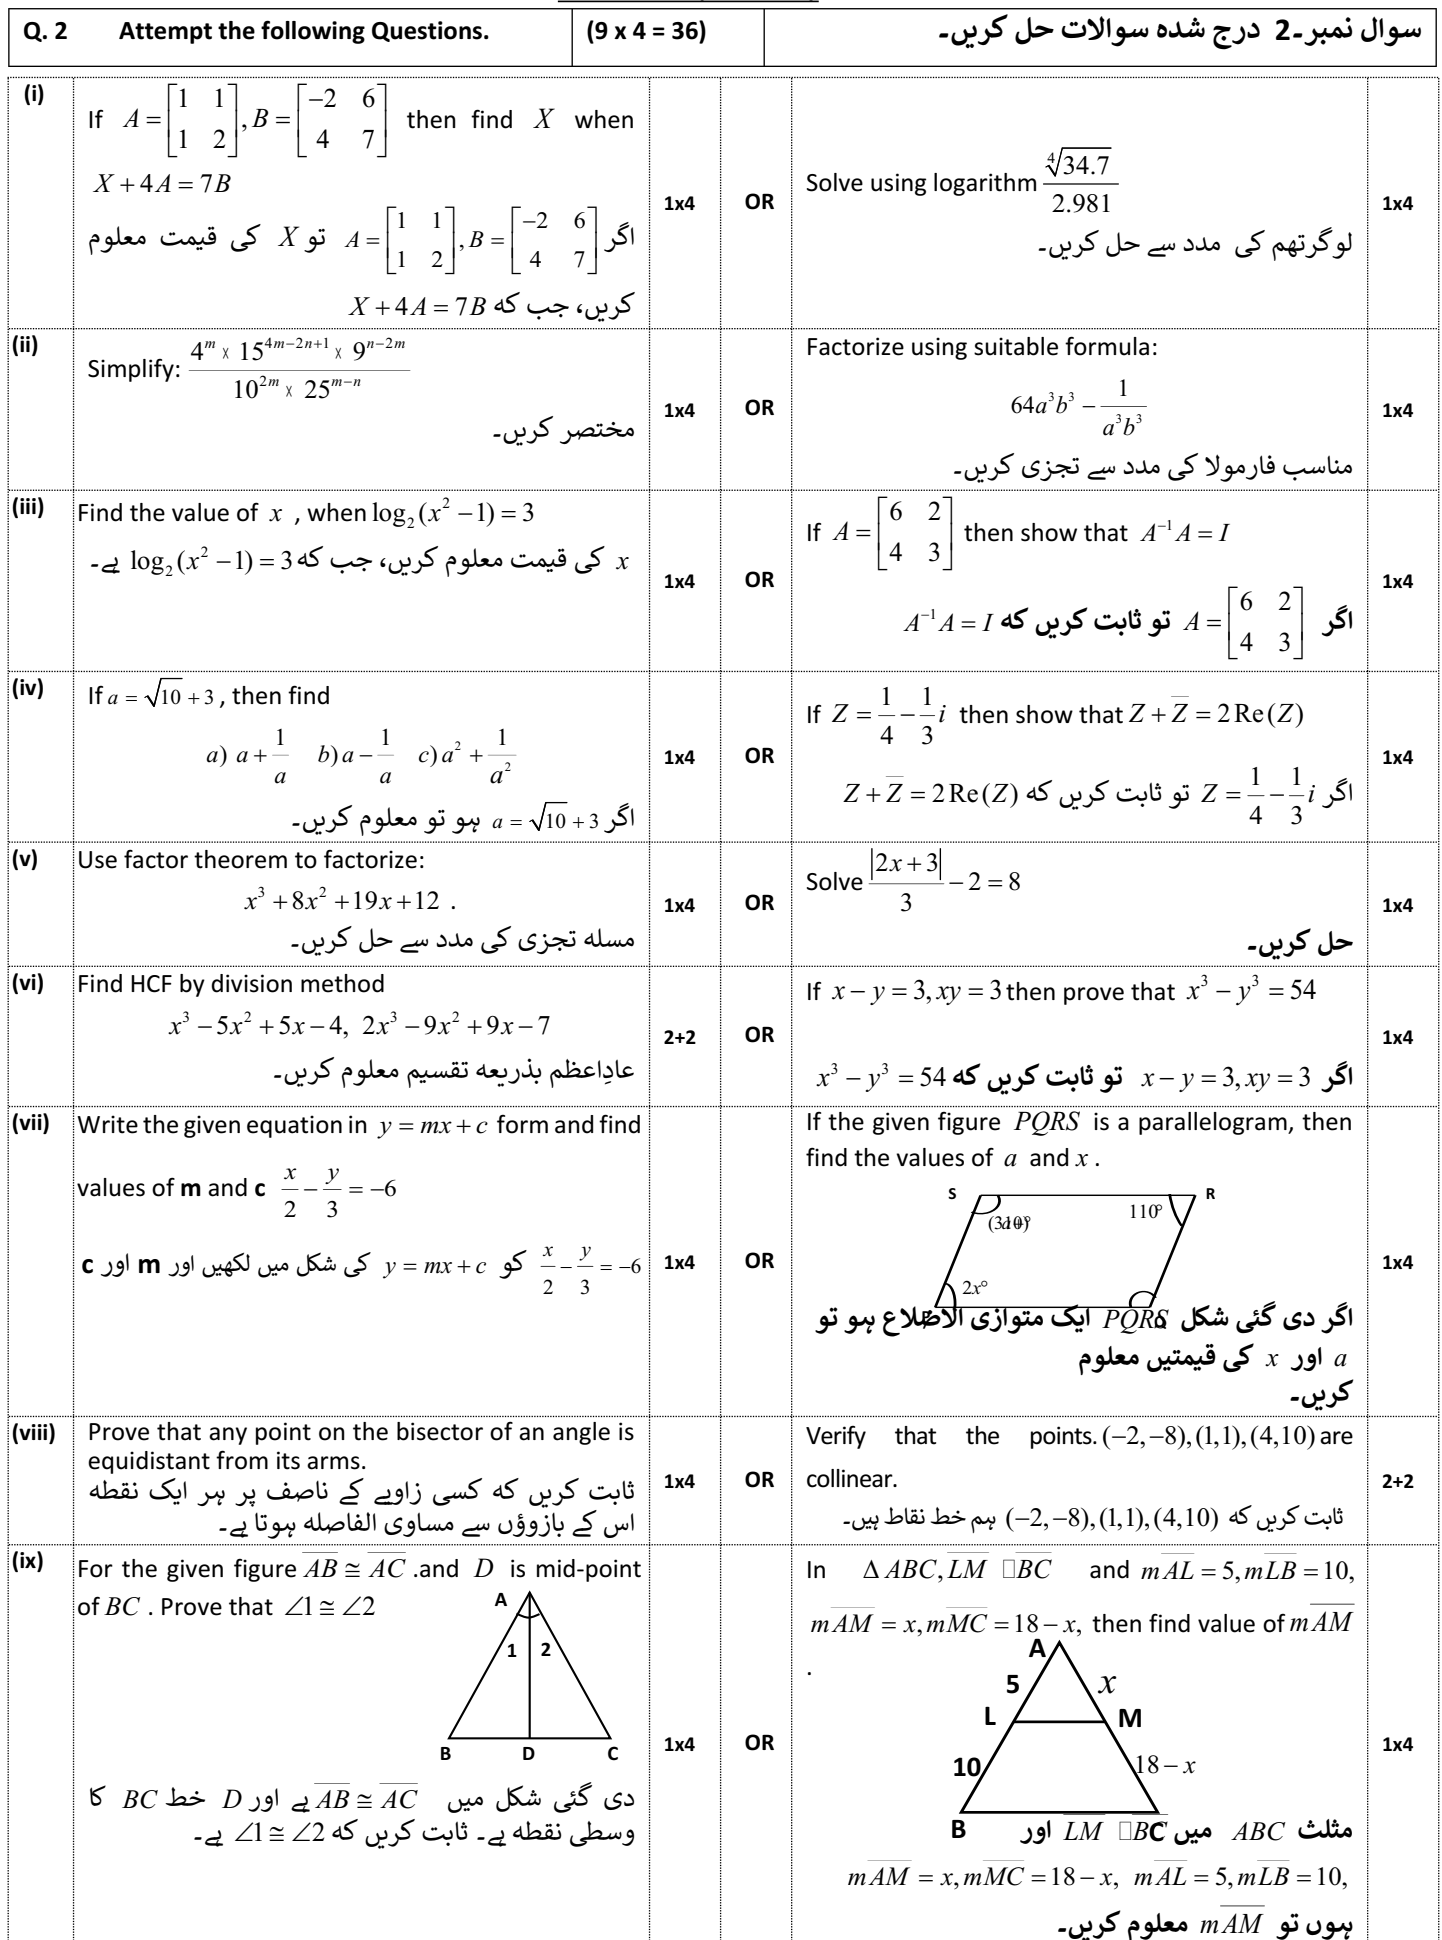 Q. 2 Attempt the following Questions. (9 x 4 = 36) سوال نمبر۔2 درج شدہ سوالات حل کریں۔
(i) If A = [1 1; 1 2], B = [−2 6; 4 7] then find X when
X + 4A = 7B
اگر A = [1 1; 1 2], B = [−2 6; 4 7] تو X کی قیمت معلوم
کریں، جب کہ X + 4A = 7B
1x4 OR
Solve using logarithm ∜34.7 / 2.981
لوگرتھم کی مدد سے حل کریں۔
1x4
(ii) Simplify: (4^m x 15^(4m−2n+1) x 9^(n−2m)) / (10^(2m) x 25^(m−n))
مختصر کریں۔
1x4 OR
Factorize using suitable formula:
64a³b³ − 1/(a³b³)
مناسب فارمولا کی مدد سے تجزی کریں۔
1x4
(iii) Find the value of x , when log₂(x² −1) = 3
x کی قیمت معلوم کریں، جب کہ log₂(x² −1) = 3 ہے۔
1x4 OR
If A = [6 2; 4 3] then show that A⁻¹A = I
اگر A = [6 2; 4 3] تو ثابت کریں کہ A⁻¹A = I
1x4
(iv) If a = √10 + 3 , then find
a) a + 1/a b) a − 1/a c) a² + 1/a²
اگر a = √10 + 3 ہو تو معلوم کریں۔
1x4 OR
If Z = 1/4 − 1/3 i then show that Z + Z̅ = 2 Re(Z)
اگر Z = 1/4 − 1/3 i تو ثابت کریں کہ Z + Z̅ = 2 Re(Z)
1x4
(v) Use factor theorem to factorize:
x³ + 8x² + 19x + 12 .
مسلہ تجزی کی مدد سے حل کریں۔
1x4 OR
Solve |2x + 3|/3 − 2 = 8
حل کریں۔
1x4
(vi) Find HCF by division method
x³ − 5x² + 5x − 4, 2x³ − 9x² + 9x − 7
عادِاعظم بذریعہ تقسیم معلوم کریں۔
2+2 OR
If x − y = 3, xy = 3 then prove that x³ − y³ = 54
اگر x − y = 3, xy = 3 تو ثابت کریں کہ x³ − y³ = 54
1x4
(vii) Write the given equation in y = mx + c form and find
values of m and c x/2 − y/3 = −6
x/2 − y/3 = −6 کو y = mx + c کی شکل میں لکھیں اور m اور c
1x4 OR
If the given figure PQRS is a parallelogram, then
find the values of a and x .
S R
110°
2x°
اگر دی گئی شکل PQRS ایک متوازی الاضلاع ہو تو
a اور x کی قیمتیں معلوم
کریں۔
1x4
(viii) Prove that any point on the bisector of an angle is
equidistant from its arms.
ثابت کریں کہ کسی زاویے کے ناصف پر ہر ایک نقطہ
اس کے بازوؤں سے مساوی الفاصلہ ہوتا ہے۔
1x4 OR
Verify that the points. (−2,−8),(1,1),(4,10) are
collinear.
ثابت کریں کہ (−2,−8),(1,1),(4,10) ہم خط نقاط ہیں۔
2+2
(ix) For the given figure A̅B̅ ≅ A̅C̅ .and D is mid-point
of BC . Prove that ∠1 ≅ ∠2
A
1 2
B D C
دی گئی شکل میں A̅B̅ ≅ A̅C̅ ہے اور D خط BC کا
وسطی نقطہ ہے۔ ثابت کریں کہ ∠1 ≅ ∠2 ہے۔
1x4 OR
In Δ ABC, L̅M̅ □B̅C̅ and mA̅L̅ = 5, mL̅B̅ = 10,
mA̅M̅ = x, mM̅C̅ = 18 − x, then find value of mA̅M̅
.
A
5 x
L M
10 18 − x
B C
مثلث ABC میں L̅M̅ □B̅C̅ اور
mA̅M̅ = x, mM̅C̅ = 18 − x, mA̅L̅ = 5, mL̅B̅ = 10,
ہوں تو mA̅M̅ معلوم کریں۔
1x4